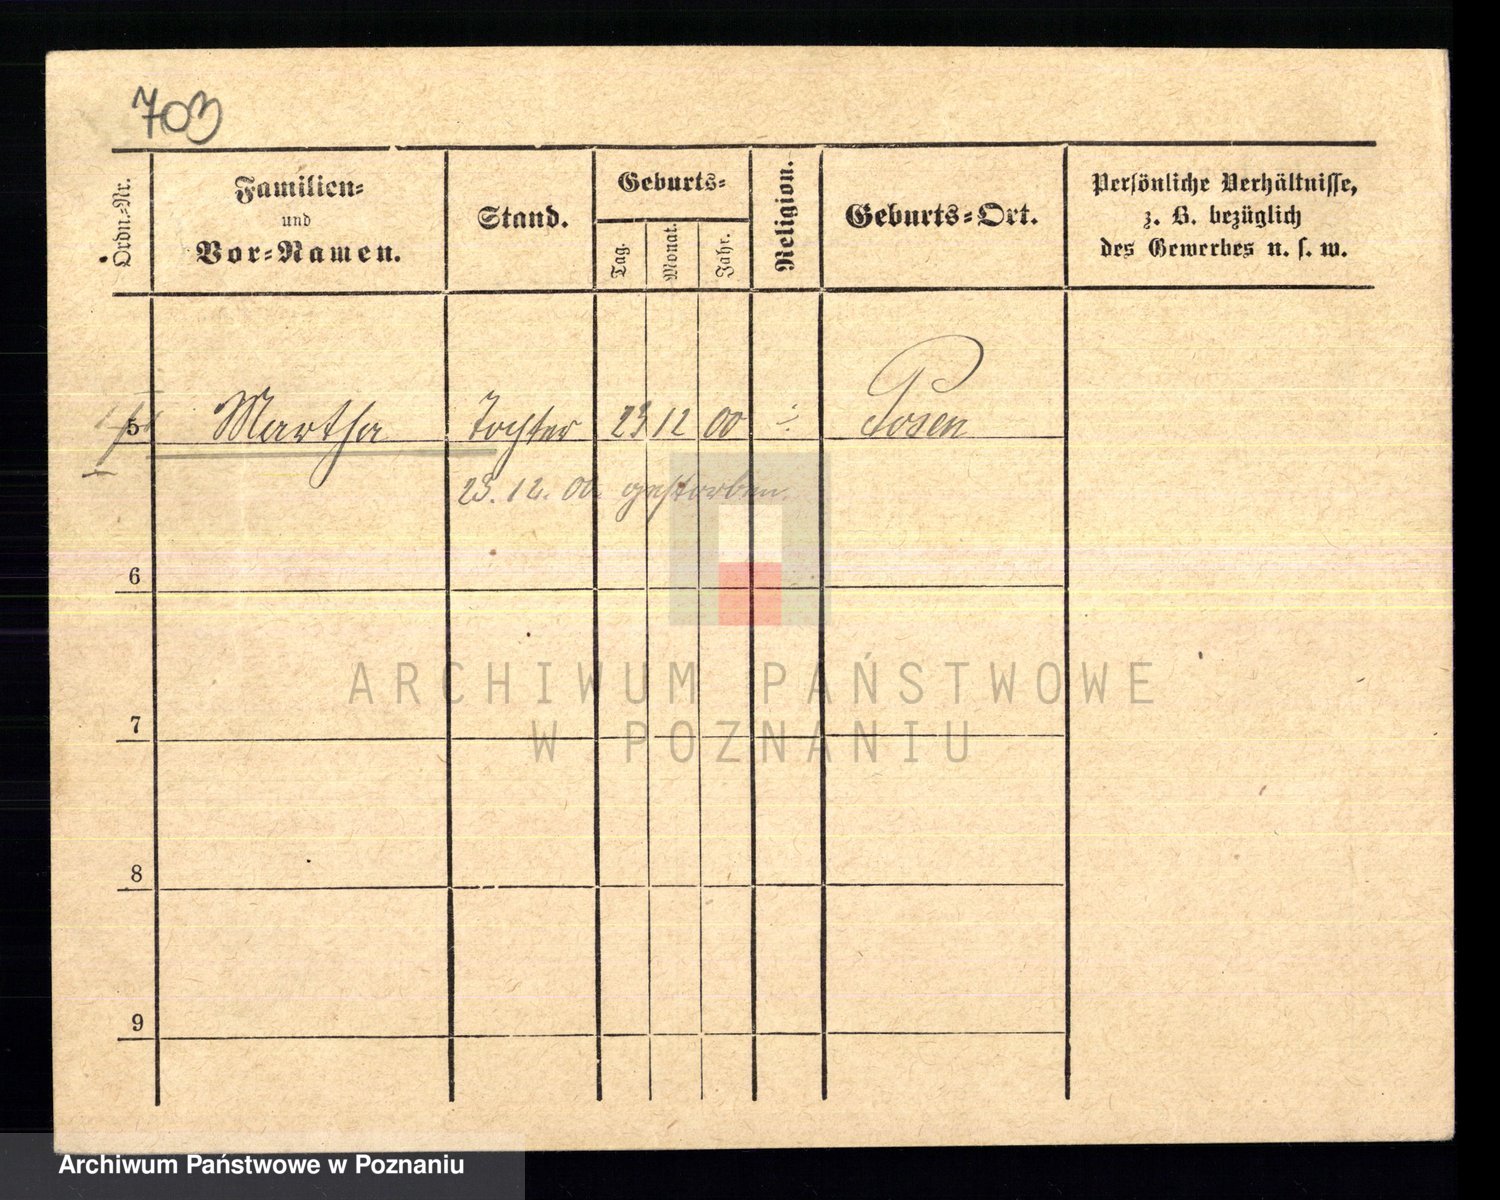 703
Ordn.-Nr.
Familien-
und
Vor-Namen.
Stand.
Geburts-
Tag.
Monat.
Jahr.
Religion.
Geburts-Ort.
Persönliche Verhältnisse,
z. B. bezüglich
des Gewerbes u. s. w.
5 Martha Tochter 23 12 00 Posen
23. 12. 00. gestorben.
6
7
8
9
ARCHIWUM PAŃSTWOWE
W POZNANIU
Archiwum Państwowe w Poznaniu